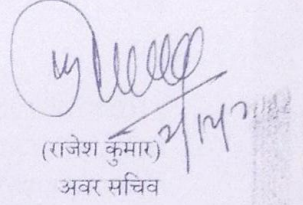 (राजेश कुमार)
अवर सचिव